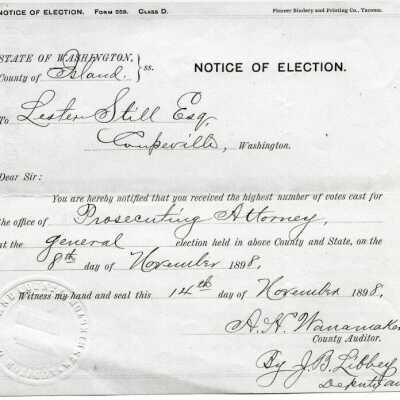 NOTICE OF ELECTION. FORM 559. CLASS D. Pioneer Bindery and Printing Co., Tacoma.
STATE OF WASHINGTON, } ss.
County of Island.
NOTICE OF ELECTION.
To Lester Still Esq,
Coupeville, Washington.
Dear Sir:
You are hereby notified that you received the highest number of votes cast for
the office of Prosecuting Attorney,
at the general election held in above County and State, on the
8th day of November 1898,
Witness my hand and seal this 14th day of November 1898,
A. H. Wanamaker
County Auditor.
By J. B. Libbey